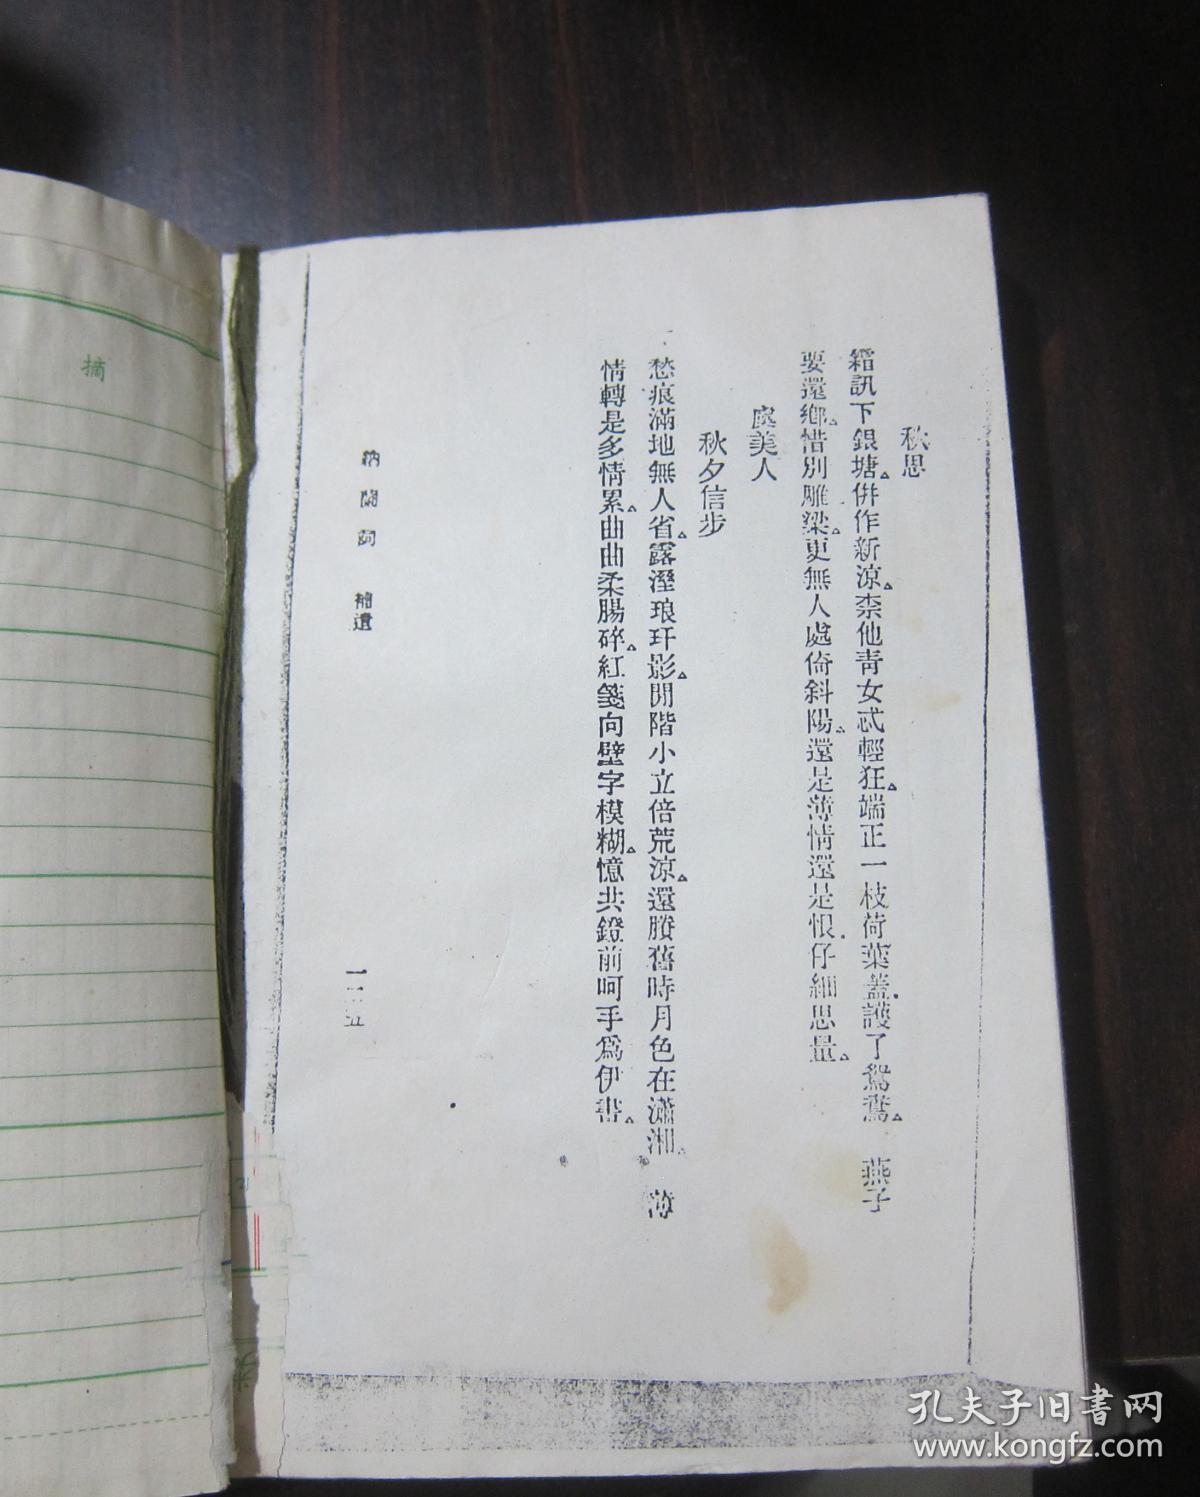 秋思
霜訊下銀塘併作新涼柰他靑女忒輕狂端正一枝荷葉蓋護了鴛鴦　燕子
要還鄕惜別雕梁更無人處倚斜陽還是薄情還是恨仔細思量
虞美人
秋夕信步
愁痕滿地無人省露溼琅玕影閒階小立倍荒涼還賸舊時月色在瀟湘　薄
情轉是多情累曲曲柔腸碎紅箋向壁字模糊憶共鐙前呵手爲伊書
納蘭詞　補遺
摘
孔夫子旧书网
www.kongfz.com